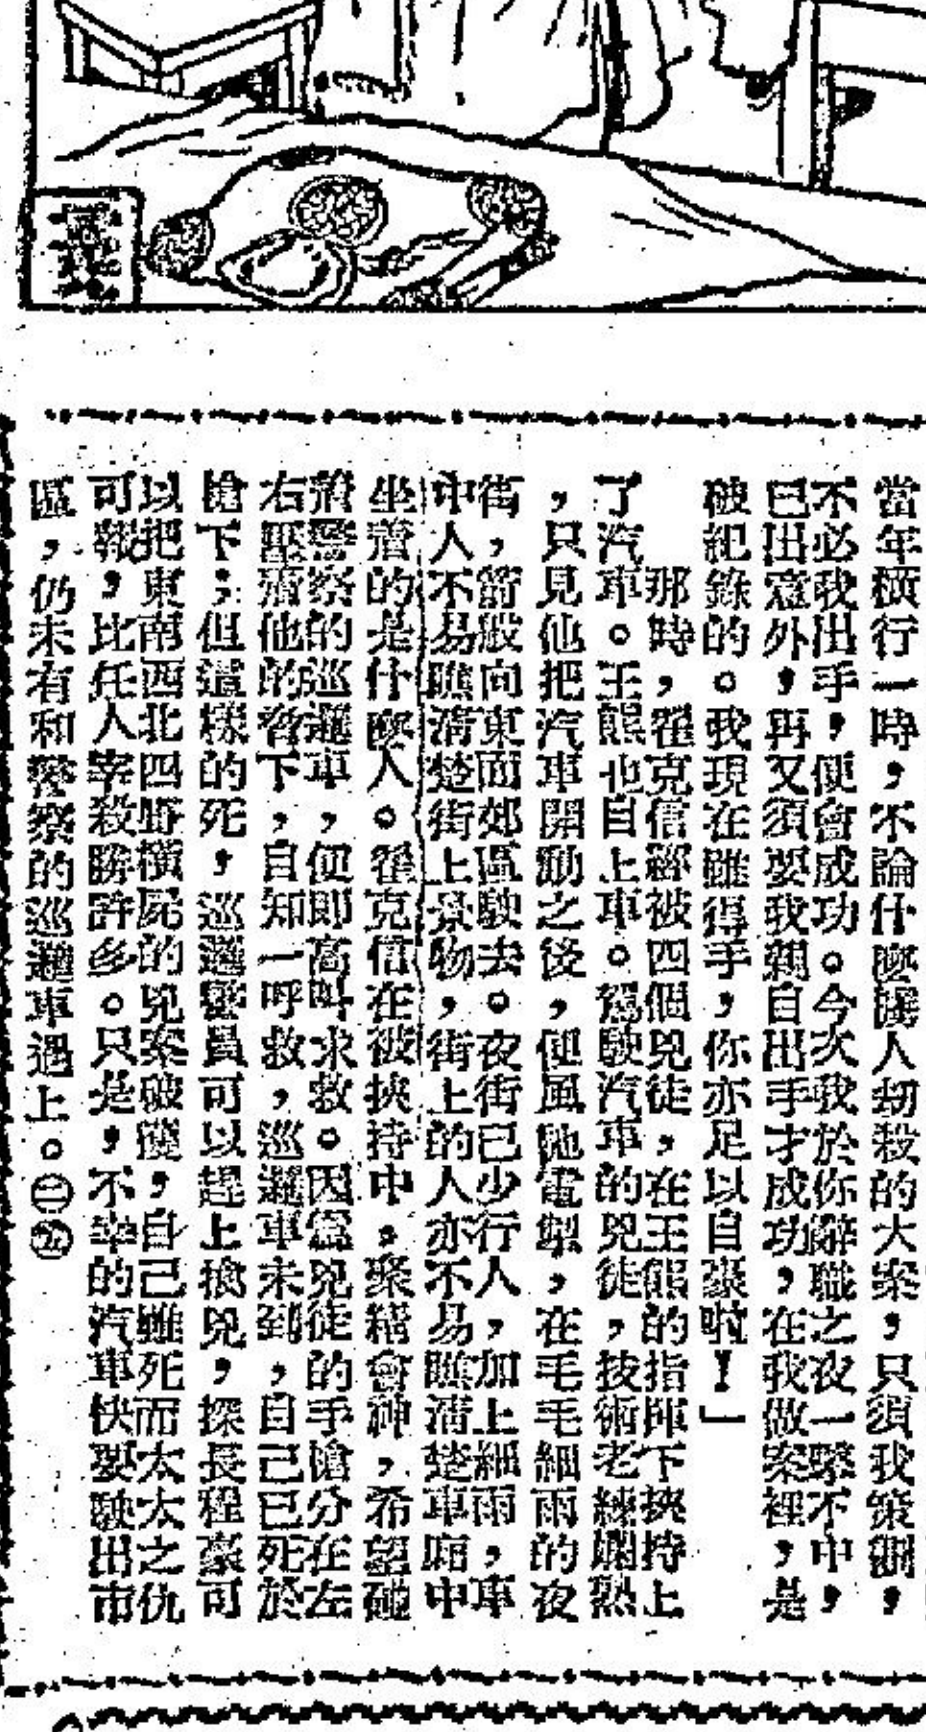 當年橫行一時，不論什麼擄人刧殺的大案，只須我策劃，
不必我出手，便會成功。今次我於你辭職之夜一擊不中，
已出意外，再又須要我親自出手才成功，在我做案裡，是
破紀錄的。我現在雖得手，你亦足以自豪啦！」
那時，翟克信經被四個兇徒，在王熊的指揮下挾持上
了汽車。王熊也自上車。駕駛汽車的兇徒，技術老練嫻熟
，只見他把汽車開動之後，便風馳電掣，在毛毛細雨的夜
街，箭般向東面郊區駛去。夜街已少行人，加上細雨，車
中人不易瞧清楚街上景物，街上的人亦不易瞧清楚車廂中
坐着的是什麼人。翟克信在被挾持中，聚精會神，希望碰
着警察的巡邏車，便即高呌求救。因爲兇徒的手槍分在左
右壓着他的脅下，自知一呼救，巡邏車未到，自己已死於
槍下；但這樣的死，巡邏警員可以趕上擒兇，探長程豪可
以把東南西北四野橫屍的兇案破獲，自己雖死而太太之仇
可報，比任人宰殺勝許多。只是，不幸的汽車快要駛出市
區，仍未有和警察的巡邏車遇上。㊁㊄